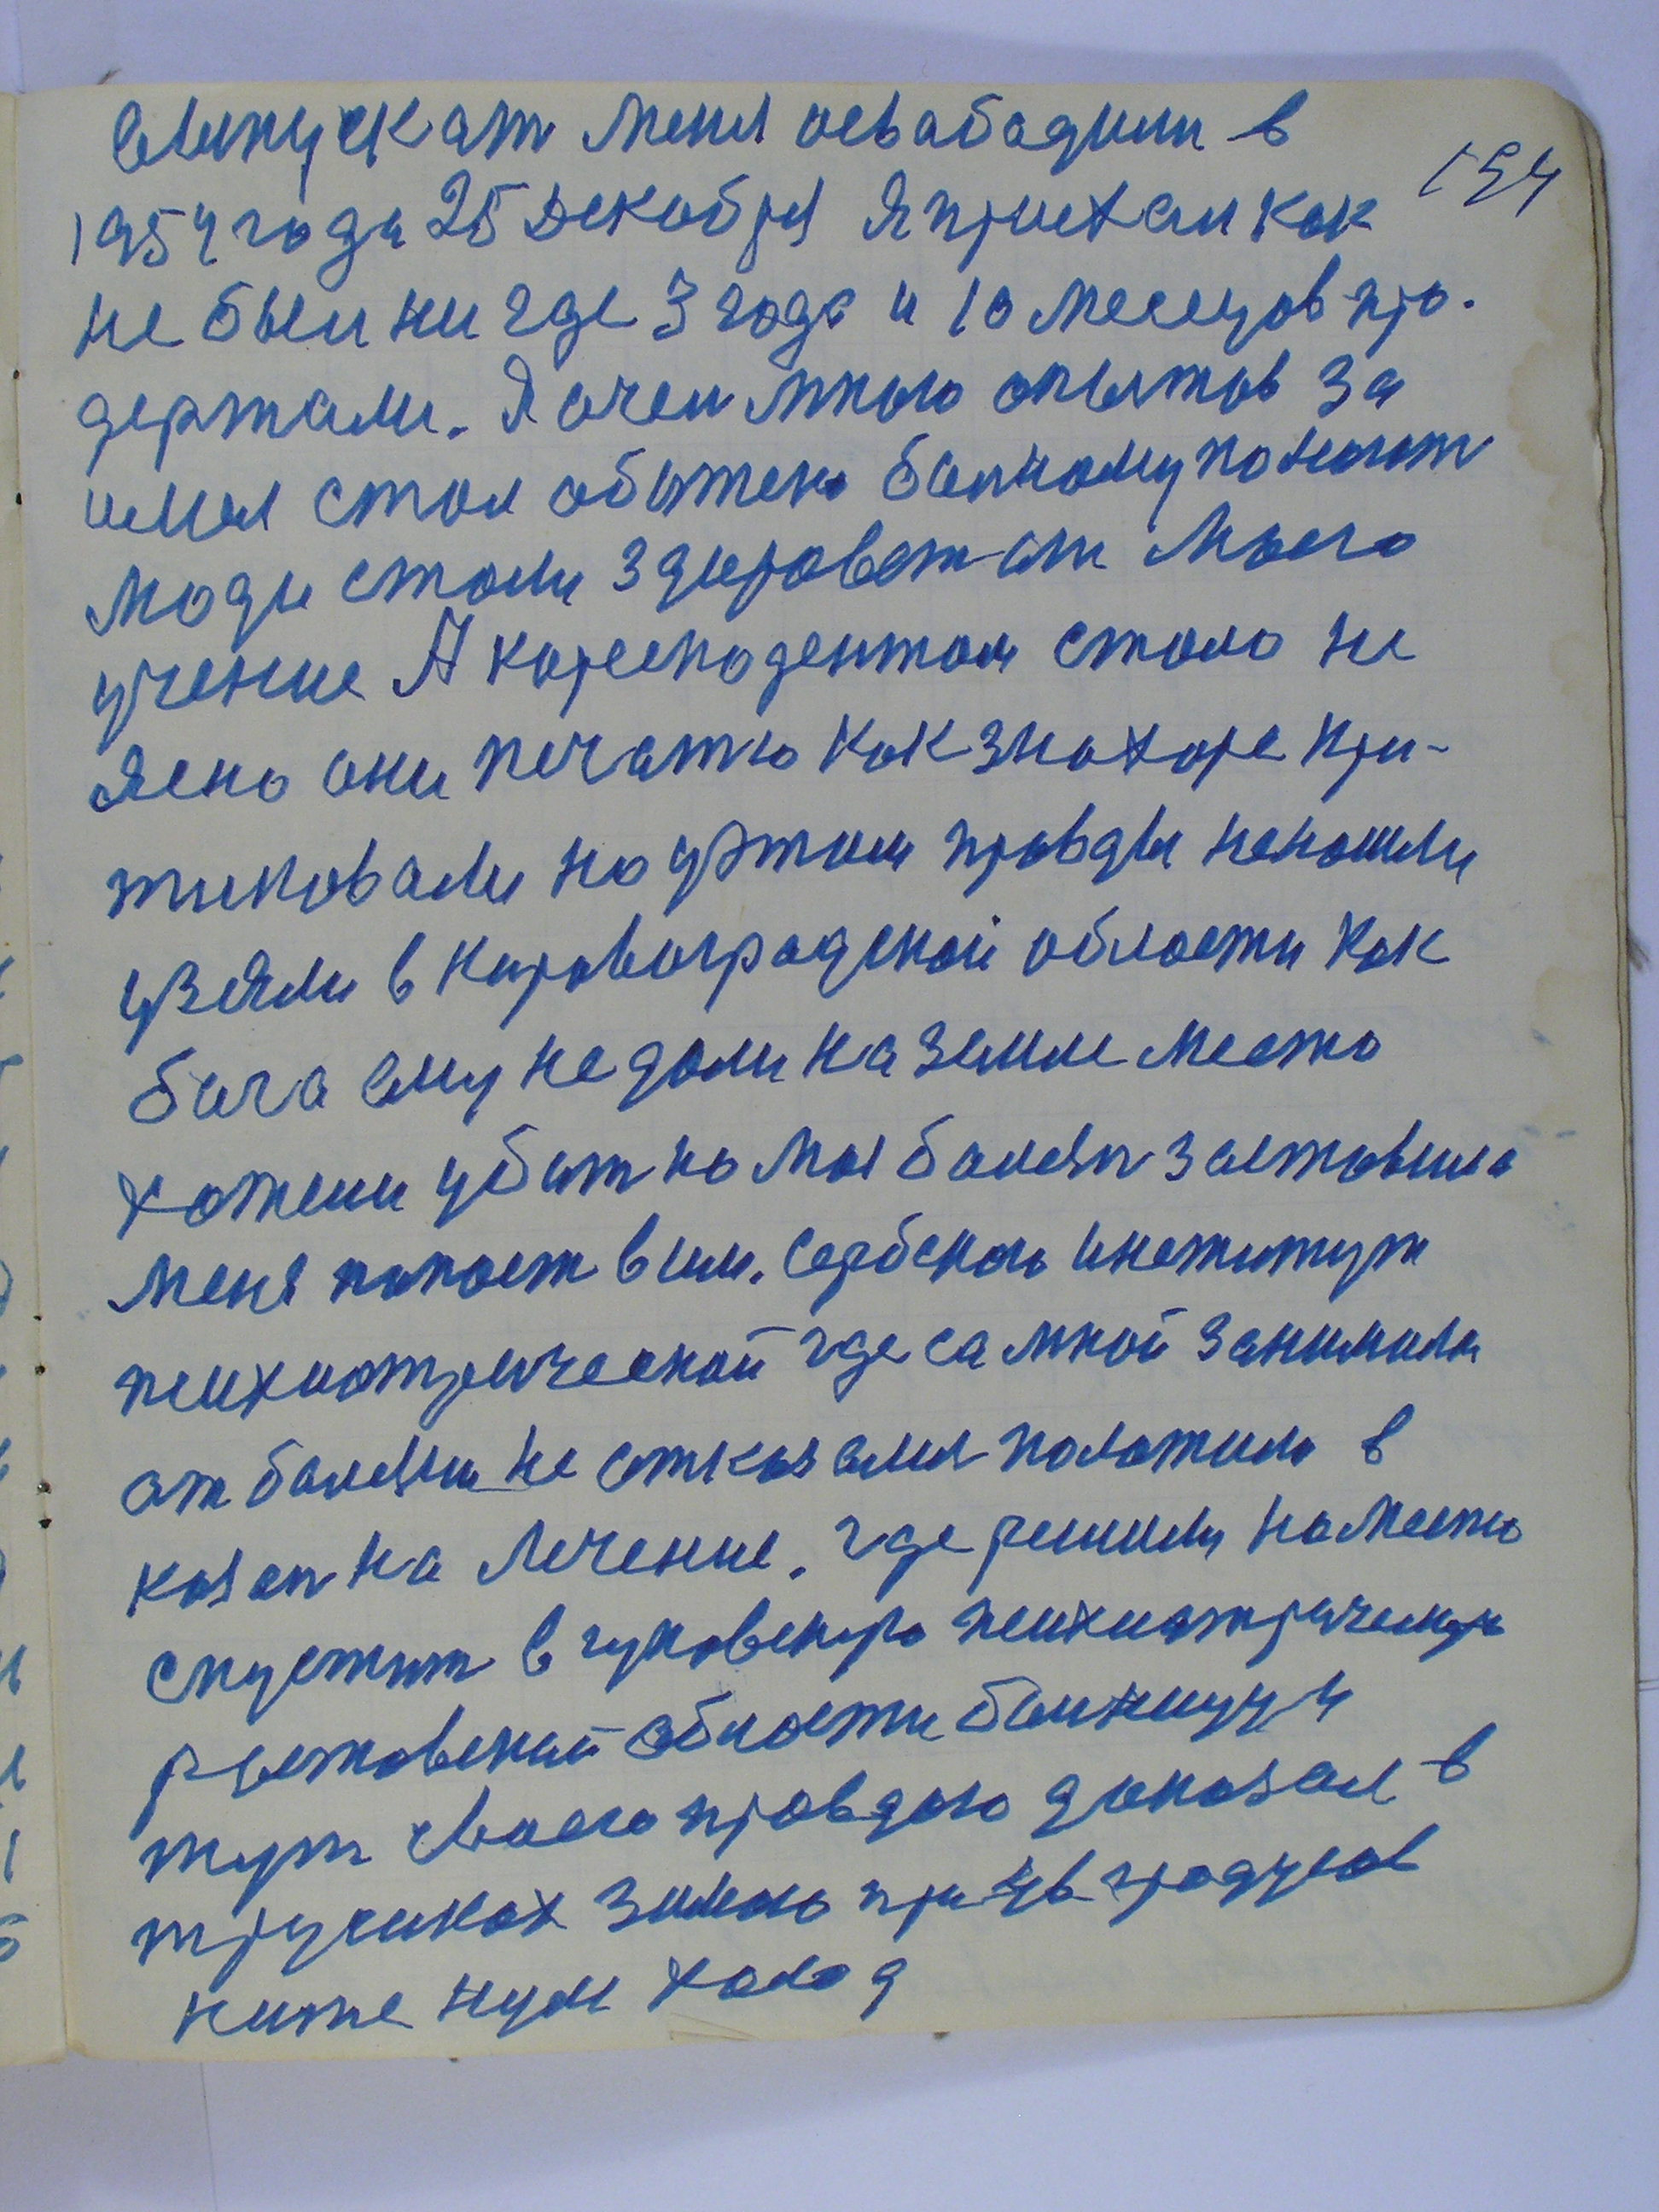 выпускат меня освабадили в
194
1954 года 25 декабря я приехал как
не был ни где 3 года и 10 месецов про-
держали. Я очен много опытов за
имел стал обыжено бальному помогат
люди стали здыроветати моего
учение А коресподентом стало не
ясно они печатю как знахоря кри-
тиковали но уэтим правды ненашли
узяли в Кировоградской области как
бога ему не дали на земле место
хотели убит но мы болезн заставила
меня попаст в им. Сербского инстытут
психиотрической где са мной занимали
от болезни не отказался положили в
казан на лечение, где решили на место
спустит в чуковскую психиотрическую
рустовской области болницу и
тут своего правдою доказал в
трусиках зимою при градусов
ниже нуля холод